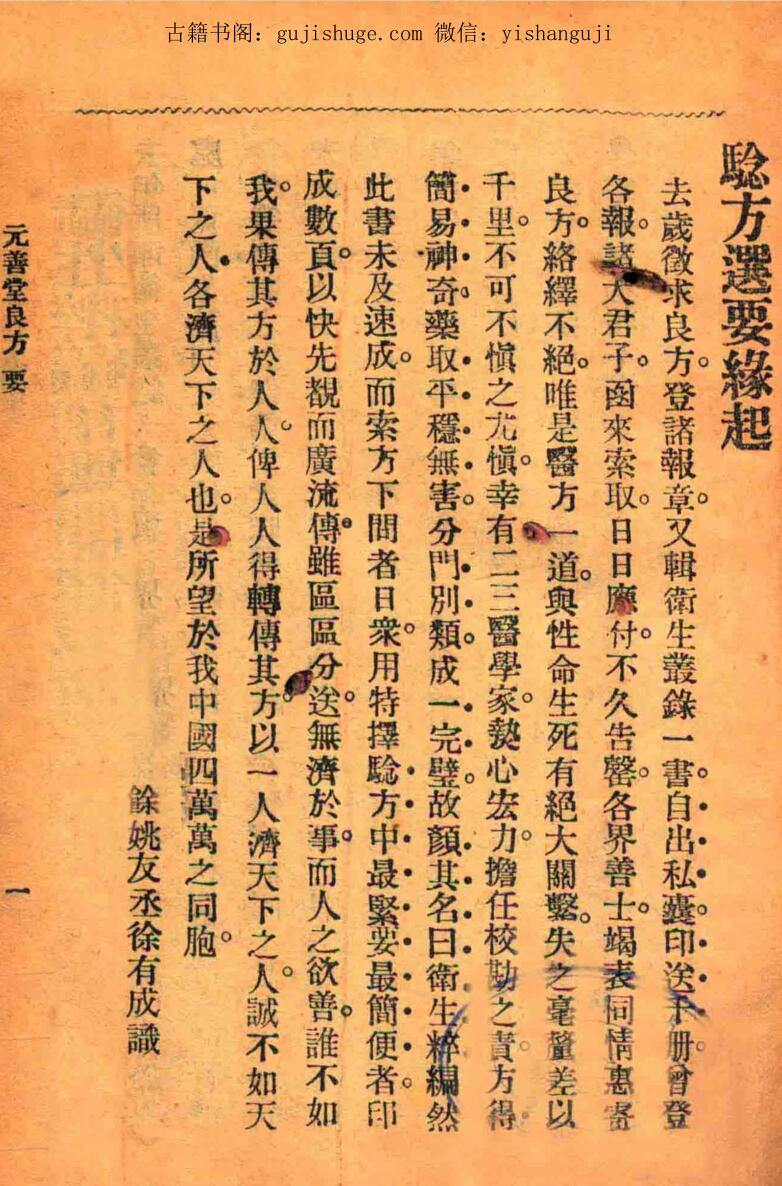 古籍书阁：gujishuge.com 微信：yishanguji
騐方選要緣起
去歲徵求良方。登諸報章。又輯衛生叢錄一書。自出私囊。印送千册。曾登
各報。諸大君子。函來索取。日日應付。不久告罄。各界善士。竭表同情。惠寄
良方。絡繹不絕。唯是醫方一道。與性命生死有絕大關繫。失之毫釐。差以
千里。不可不愼之尤愼。幸有二三醫學家。熱心宏力。擔任校勘之責。方得
簡易神奇。藥取平穩無害。分門別類。成一完璧。故顏其名曰衛生粹編。然
此書未及速成。而索方下問者日衆。用特擇騐方中最緊要最簡便者。印
成數頁。以快先覩而廣流傳。雖區區分送。無濟於事。而人之欲善。誰不如
我。果傳其方於人人。俾人人得轉傳其方。以一人濟天下之人。誠不如天
下之人各濟天下之人也。是所望於我中國四萬萬之同胞。
餘姚友丞徐有成識
元善堂良方 要
一